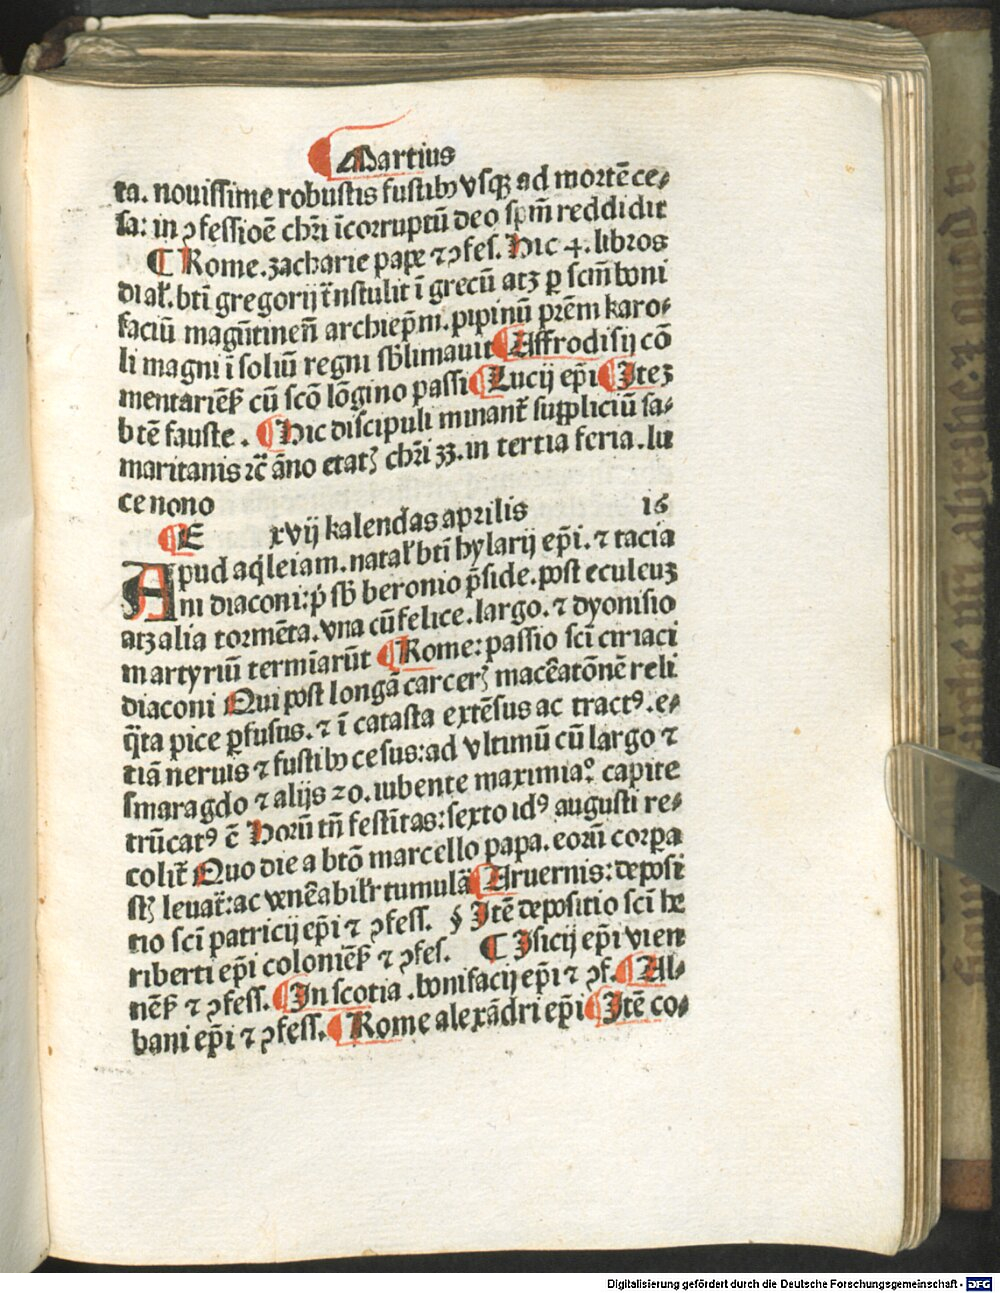 Martius
ta. nouissime robustis fustibꝫ vsqꝫ ad mortē ce⸗
sa: in ꝯfessioē chꝛi īcorruptū deo spm̄ reddidit
¶ Rome. zacharie pape ⁊ ꝯfes. Hic 4. libros
dial̉. bt̄i gregorij t̄nstulit ī grecū atqꝫ ꝑ scm̄ boni
faciū magūtineñ archiep̄m. pipinū pr̄em karo⸗
li magni ī soliū regni sb̄limauit ¶ Affrodisij cō
mentarieñ cū scō lōgino passi ¶ Lucij ep̄i ¶ Iteꝫ
btē fauste. ¶ Hic discipuli minant̄ suppliciū sa⸗
maritanis ⁊c̄ āno etatꝭ chꝛi 33. in tertia feria. lu
ce nono
¶ E xvij kalendas aprilis 16
Apud aq̄leiam. natal̉ bt̄i hylarij ep̄i. ⁊ tacia
ni diaconi: p̱ sb̄ beronio p̄side. post eculeuꝫ
atqꝫ alia tormēta. vna cū felice. largo. ⁊ dyonisio
martyriū termīarūt ¶ Rome: passio sc̄i ciriaci
diaconi Qui post longā carcerꝭ macēatōnē reli
q̄ta pice ꝑfusus. ⁊ ī catasta extēsus ac tractꝰ. e⸗
tiā neruis ⁊ fustibꝫ cesus: ad vltimū cū largo ⁊
smaragdo ⁊ alijs 20. iubente maximiaº. capite
trūcatꝰ ē Horū tn̄ festītas: sexto idꝰ augusti re⸗
colit̄ Quo die a btō marcello papa. eorū corpa
st̄ꝭ leuat̄: ac venēabil̉r tumulā ¶ Aruernis: deposi
tio sc̄i patricij ep̄i ⁊ ꝯfess. § Itē depositio sc̄i he
riberti ep̄i colonieñ ⁊ ꝯfes. ¶ Isicij ep̄i vien
neñ ⁊ ꝯfess. ¶ In scotia. bonifacij ep̄i ⁊ ꝯf. ¶ Al⸗
bani ep̄i ⁊ ꝯfess. ¶ Rome alexādri ep̄i ¶ Itē co⸗
Digitalisierung gefördert durch die Deutsche Forschungsgemeinschaft - DFG